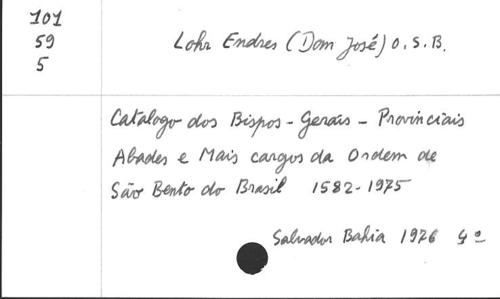 101
59
5
Lohr Endres (Dom José) O. S. B.
Catalogo dos Bispos - Gerais - Provinciais
Abades e Mais cargos da Ordem de
São Bento do Brasil 1582-1975
Salvador Bahia 1976 4º